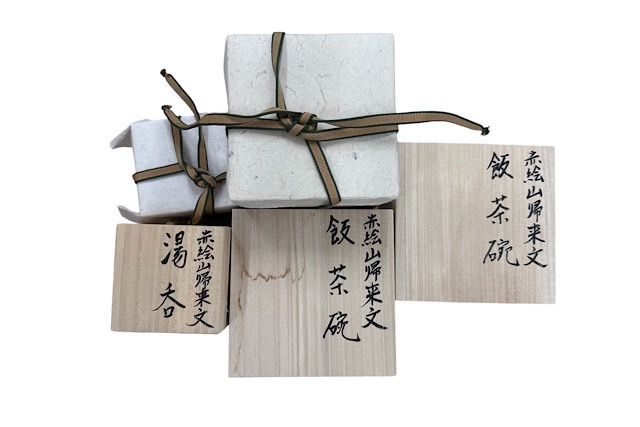 赤絵山帰来文
湯呑
赤絵山帰来文
飯茶碗
赤絵山帰来文
飯茶碗